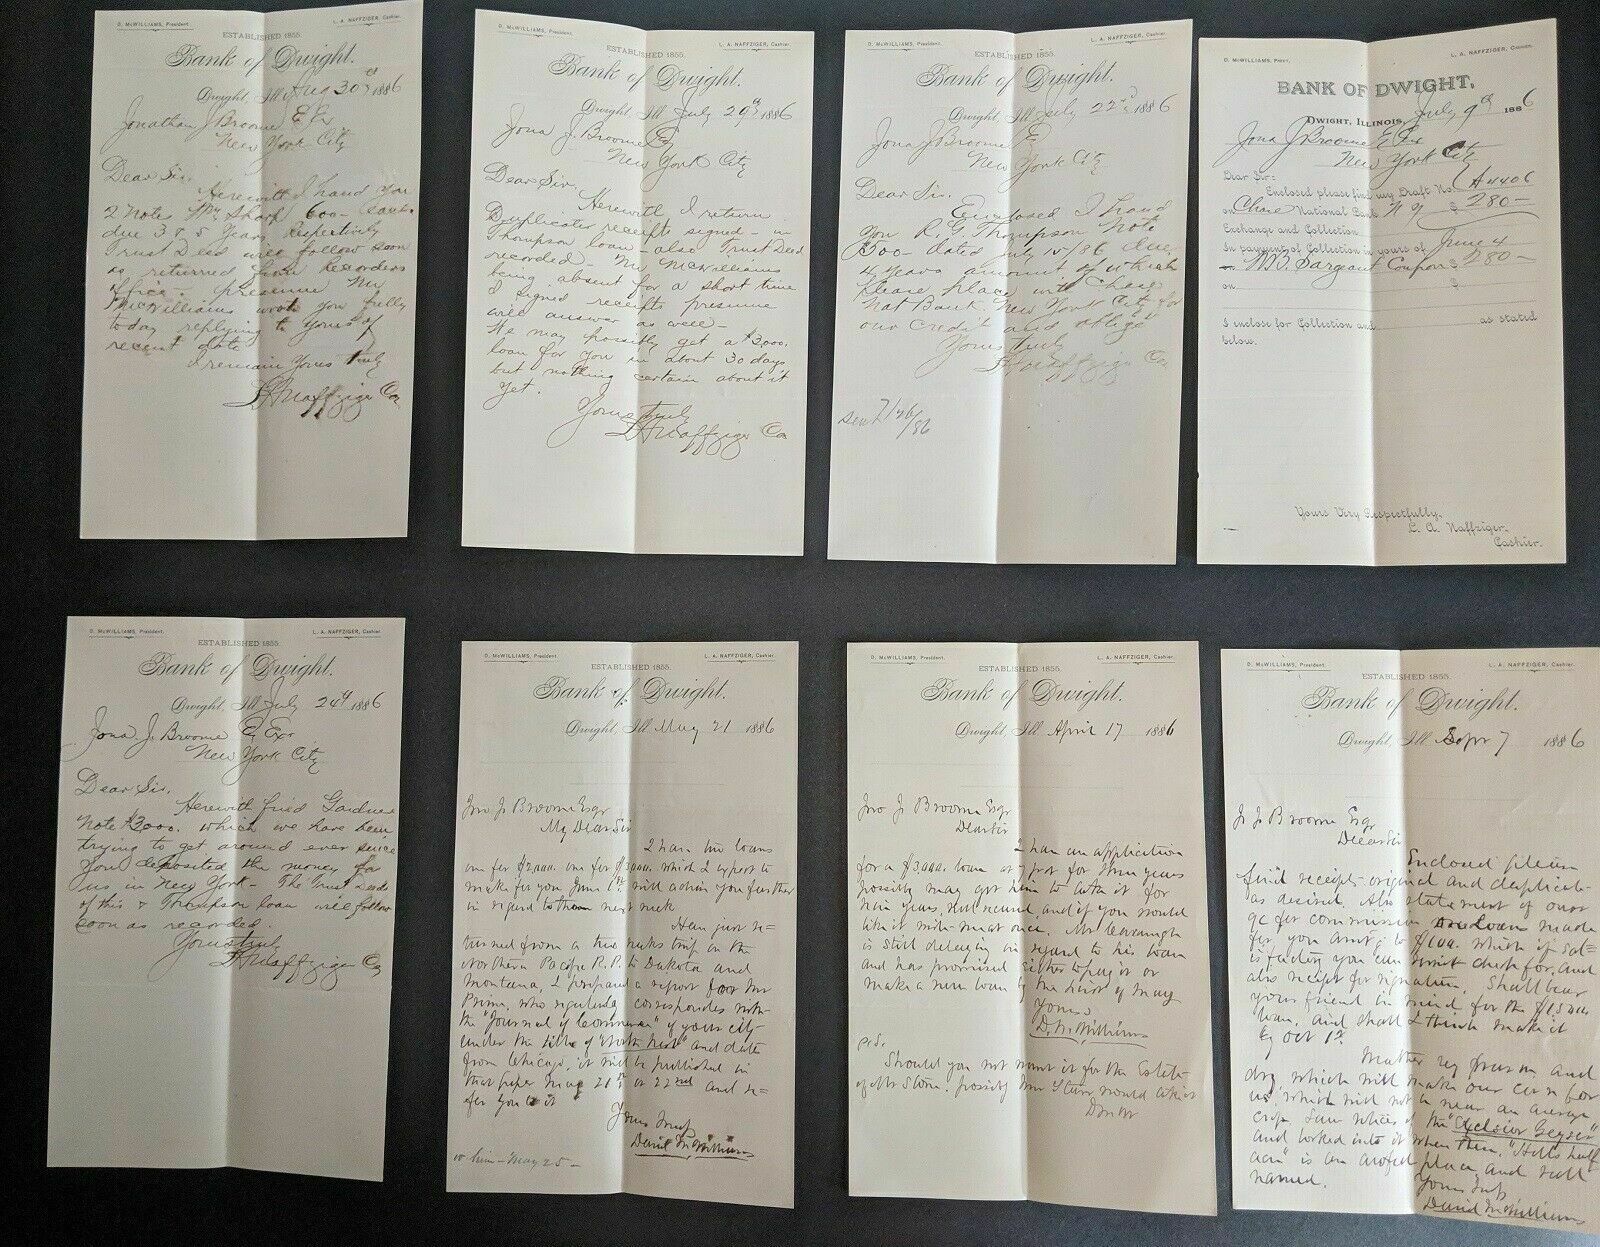 D. McWILLIAMS, President.
L. A. NAFFZIGER, Cashier.
ESTABLISHED 1855.
Bank of Dwight.
Dwight, Ill Aug 30th 1886
Jonathan J Broome
New York City
Dear Sir,
Herewith I hand you
2 Notes Wm Sharp 600-
due 3 & 5 Years respectively
Trust Deed will follow soon
as returned from Recorders
office - presume Mr
McWilliams wrote you fully
today replying to yours of
recent date
I remain Yours truly
LA Naffziger Ca
D. McWILLIAMS, President.
L. A. NAFFZIGER, Cashier.
ESTABLISHED 1855.
Bank of Dwight.
Dwight, Ill July 29th 1886
Jona J. Broome
New York City
Dear Sir,
Herewith I return
Duplicate receipts signed - in
Thompson loan - also Trust Deed
recorded - Mr McWilliams
being absent for a short time
I signed receipts presume
will answer as well -
He may possibly get a $3,000.
loan for you in about 30 days
but nothing certain about it
yet.
Yours truly
LA Naffziger Ca
D. McWILLIAMS, President.
L. A. NAFFZIGER, Cashier.
ESTABLISHED 1855.
Bank of Dwight.
Dwight, Ill July 22nd 1886
Jona J Broome
New York City
Dear Sir,
Enclosed I hand
you R. G. Thompson Note
dated July 10/86 due
4 Years amount of which
please place with Chase
Nat Bank. New York City for
our credit and oblige
Yours truly
LA Naffziger Ca
7/26/86
D. McWILLIAMS, Prest.
L. A. NAFFZIGER, Cashier.
BANK OF DWIGHT,
DWIGHT, ILLINOIS, July 9th 1886
Jona J Broome
New York City
Dear Sir:
Enclosed please find my Draft No
on Chase National Bank N Y $ 280-
Exchange and Collection
In payment of Collection in yours of June 4
Sargant Coupon $ 280-
on $
I enclose for Collection and as stated
below.
Yours Very Respectfully,
L. A. Naffziger.
Cashier.
D. McWILLIAMS, President.
L. A. NAFFZIGER, Cashier.
ESTABLISHED 1855.
Bank of Dwight.
Dwight, Ill July 24th 1886
Jona J. Broome Exr
New York City
Dear Sir,
Herewith find Gardner
Note $3000. which we have been
trying to get around ever since
you deposited the money for
us in New York - The Trust Deeds
of this & Thompson loan will follow
soon as recorded.
Yours truly
LA Naffziger Ca
D. McWILLIAMS, President.
L. A. NAFFZIGER, Cashier.
ESTABLISHED 1855.
Bank of Dwight.
Dwight, Ill May 21 1886
Jno J Broome Esqr
My Dear Sir
I have two loans
one for $2,000. one for $3,000. which I expect to
make for you June 1st will advise you further
in regard to them next week
Have just re-
turned from a two weeks trip on the
Northern Pacific R.R. to Dakota and
Montana, I prepared a report for Mr
Prime, who regularly corresponds with
the "Journal of Commerce" of your city
under the title of and dates
from Chicago, it will be published in
that paper May 21st or 22nd and re-
fer you to it
Yours Truly
David McWilliams
him - May 25 -
D. McWILLIAMS, President.
L. A. NAFFZIGER, Cashier.
ESTABLISHED 1855.
Bank of Dwight.
Dwight, Ill April 17 1886
Jno J Broome Esqr
Dear Sir
I have an application
for a $3,000. loan at 7 pr ct for three years
possibly may get him to take it for
five years, well secured, and if you would
like it write me at once. Mr Cavanagh
is still delaying in regard to his loan
and has promised either to pay it or
make a new loan by the first of May
Yours
D. McWilliams
P.S.
Should you not want it for the Estate
of Mr Stone, possibly Mr Starr would take it
D McW
D. McWILLIAMS, President.
L. A. NAFFZIGER, Cashier.
ESTABLISHED 1855.
Bank of Dwight.
Dwight, Ill Sepr 7 1886
J J Broome Esq
Dear Sir
Enclosed please
find receipts original and duplicate
as desired. Also statement of our
a/c for commission on loan made
for you amt'g to $100. which if sat-
isfactory you can remit check for, and
also receipt for signature. Shall bear
your friend in mind for the $1500
loan, and shall I think make it
by Oct 1st.
Weather very warm and
dry, which will make our corn for
us, which will not be near an average
crop. Saw notices of the "Excelsior Geyser"
and looked into it when there, "Hells half
acre" is an awful place, and well
named.
Yours Truly
David McWilliams